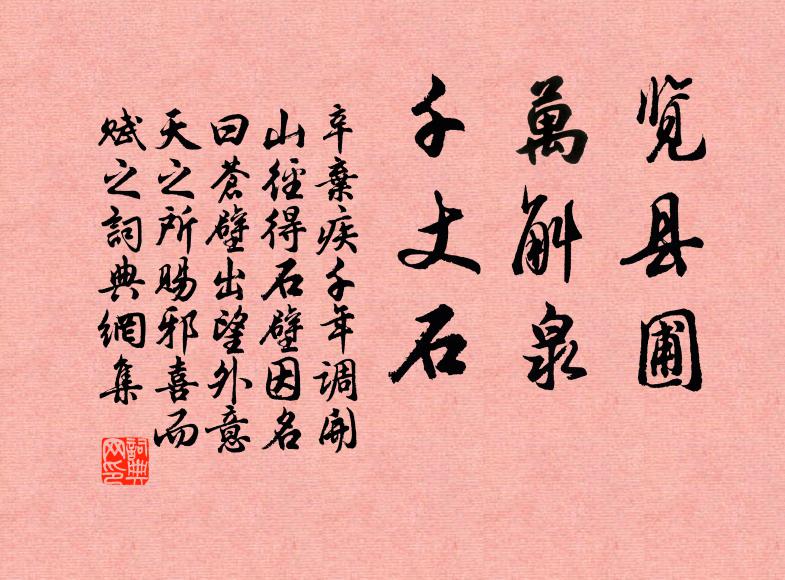 览县圃
萬斛泉
千丈石
辛棄疾千年调開
山徑得石壁因名
曰蒼壁出望外意
天之所賜邪喜而
賦之詞典網集
詞典
网印